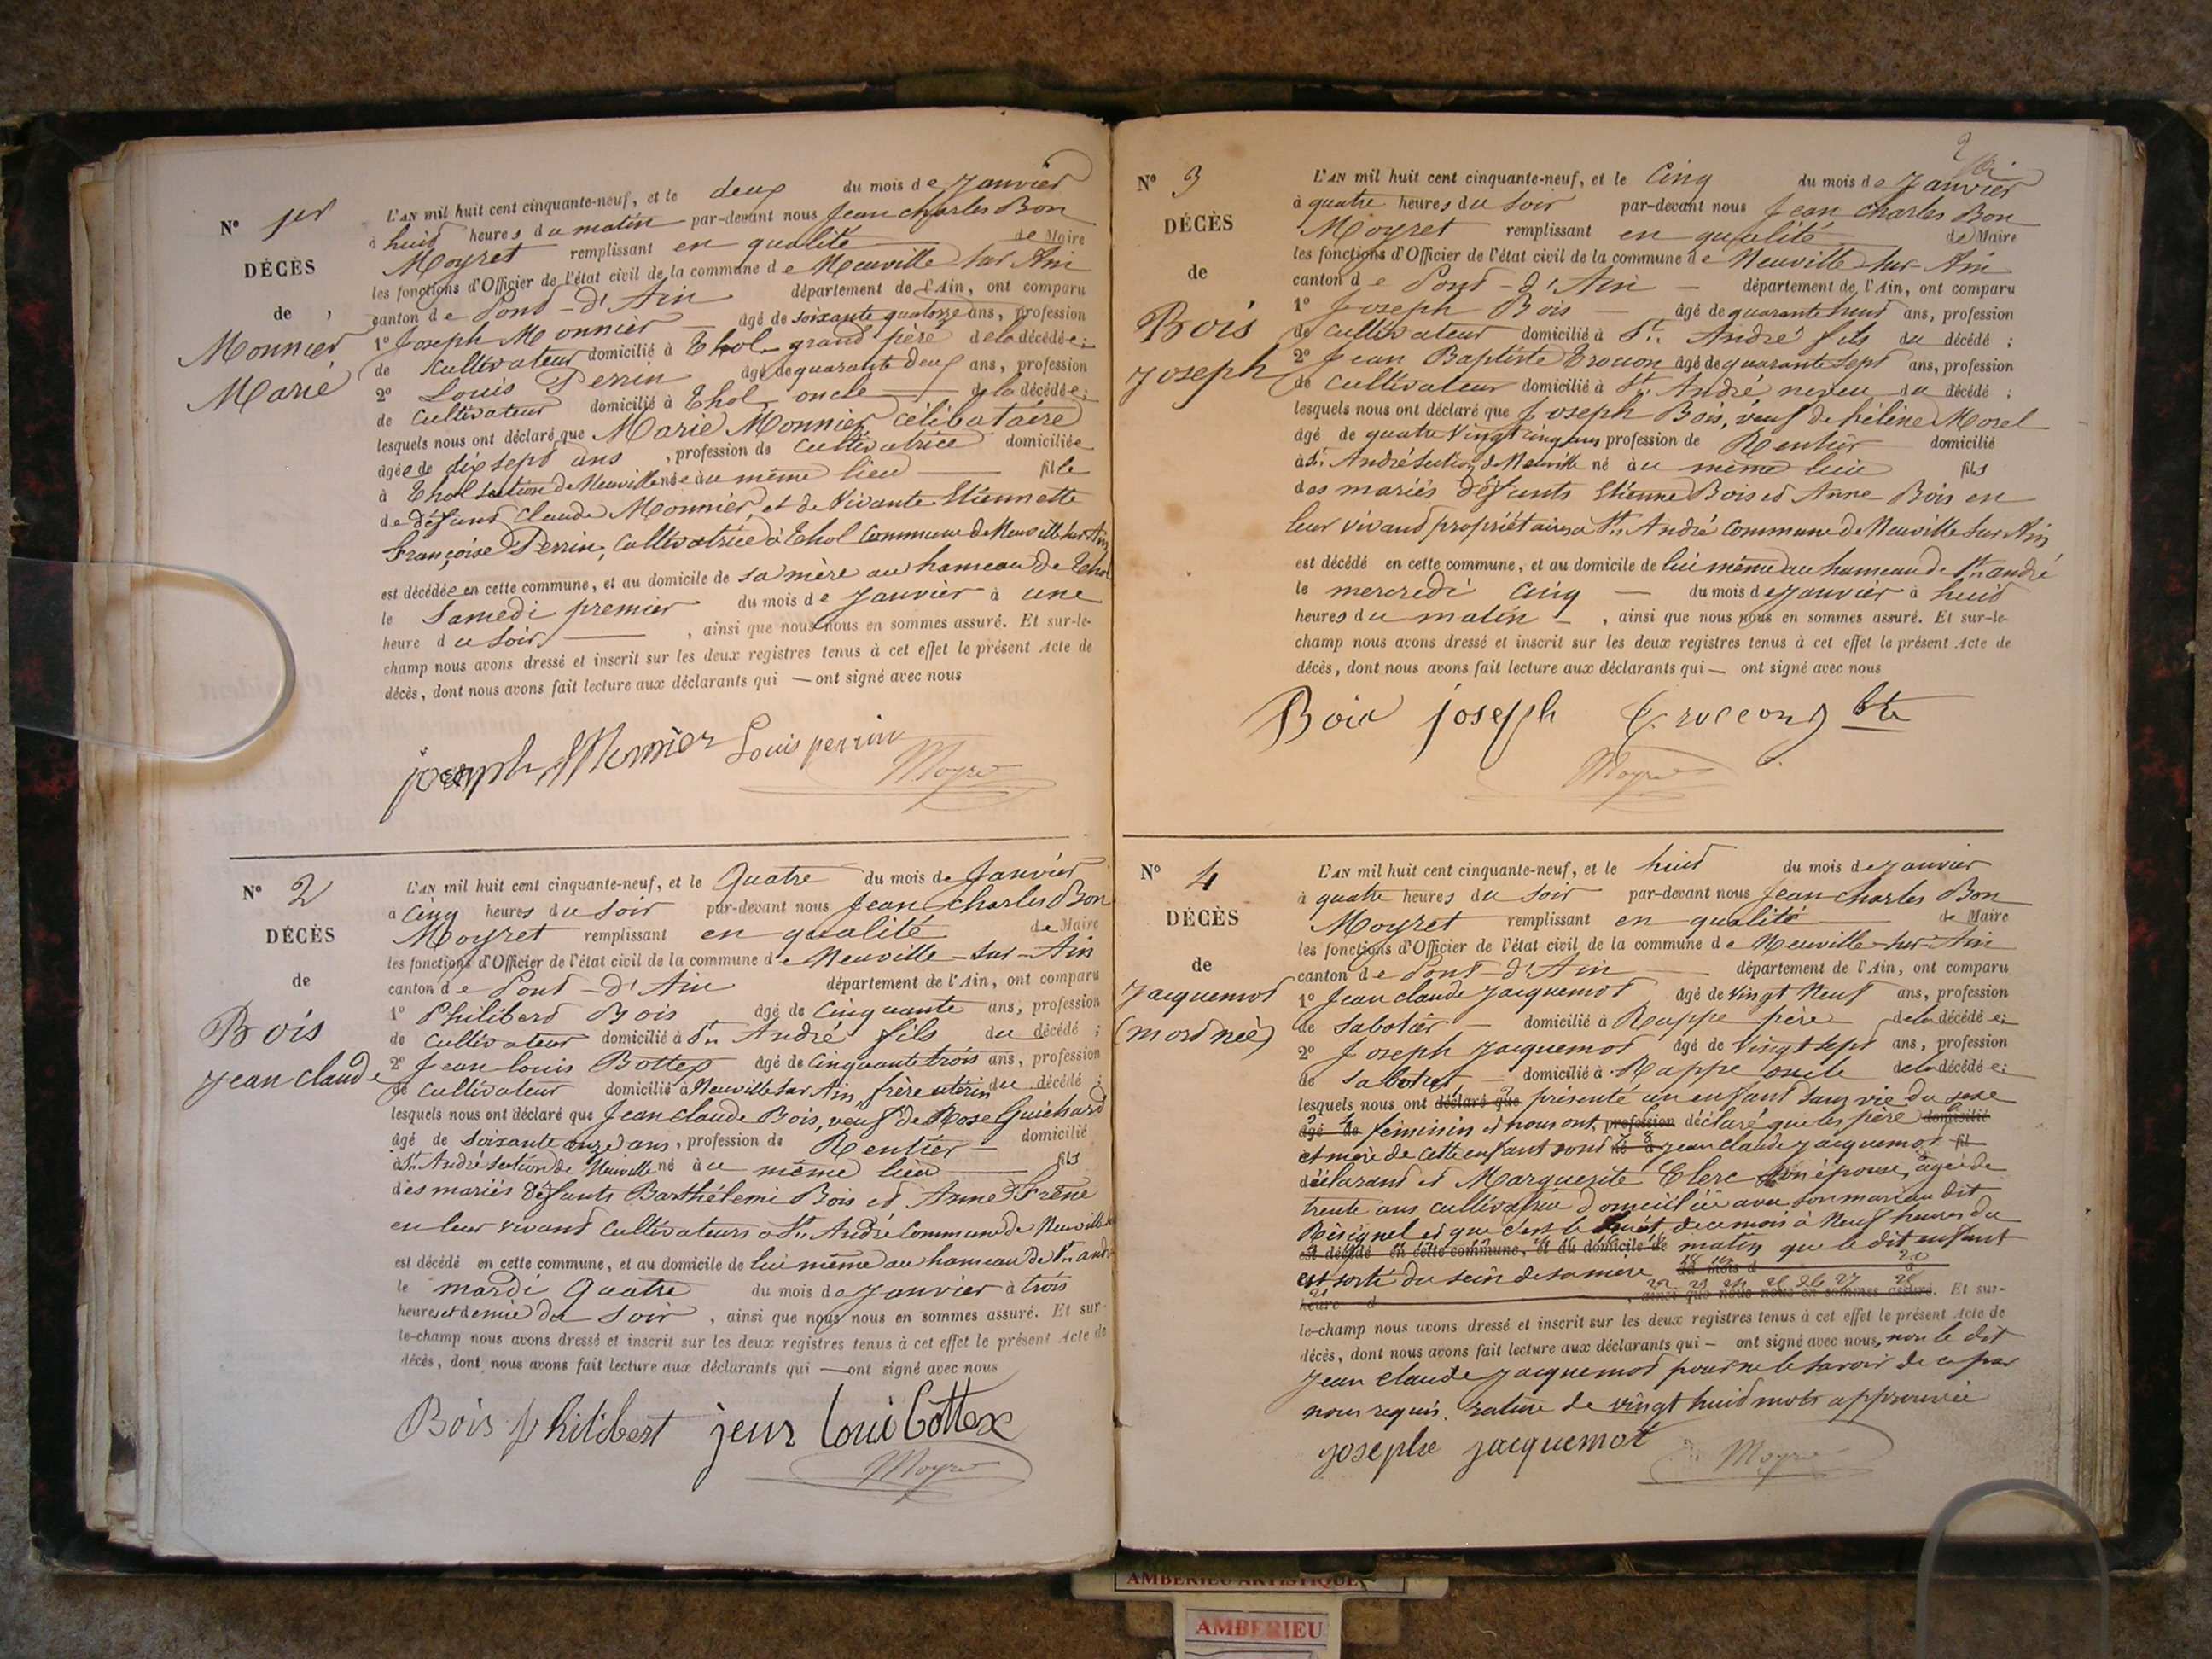 Nº 1er
DÉCÈS
de
Monnier
Marie
L'AN mil huit cent cinquante-neuf, et le deux du mois de Janvier
à huit heures du matin par-devant nous Jean Charles Bon
Moyret remplissant en qualité de Maire
les fonctions d'Officier de l'état civil de la commune de Neuville sur Ain
canton de Pont-d'Ain département de l'Ain, ont comparu
1º Joseph Monnier âgé de soixante quatorze ans, profession
de Cultivateur domicilié à Thol grand père de la décédée;
2º Louis Perrin âgé de quarante deux ans, profession
de Cultivateur domicilié à Thol oncle de la décédée;
lesquels nous ont déclaré que Marie Monnier, Célibataire
âgée de dix sept ans, profession de Cultivatrice domiciliée
à Thol section de Neuville née au même lieu fille
de défunt Claude Monnier, et de Vivante Etiennette
Françoise Perrin, Cultivatrice à Thol Commune de Neuville sur Ain
est décédée en cette commune, et au domicile de sa mère au hameau de Thol
le Samedi premier du mois de Janvier à une
heure du soir, ainsi que nous nous en sommes assuré. Et sur-le-
champ nous avons dressé et inscrit sur les deux registres tenus à cet effet le présent Acte de
décès, dont nous avons fait lecture aux déclarants qui — ont signé avec nous
joseph Monnier Louis perrin
Moyret
Nº 2
DÉCÈS
de
Bois
Jean Claude
L'AN mil huit cent cinquante-neuf, et le Quatre du mois de Janvier
à Cinq heures du soir par-devant nous Jean Charles Bon
Moyret remplissant en qualité de Maire
les fonctions d'Officier de l'état civil de la commune de Neuville-sur-Ain
canton de Pont-d'Ain département de l'Ain, ont comparu
1º Philibert Bois âgé de Cinquante ans, profession
de Cultivateur domicilié à St. André fils du décédé;
2º Jean Louis Bottex âgé de Cinquante trois ans, profession
de Cultivateur domicilié à Neuville sur Ain, frère utérin du décédé;
lesquels nous ont déclaré que Jean Claude Bois, veuf de Rose Guichard
âgé de soixante onze ans, profession de Rentier domicilié
à St. André section de Neuville né au même lieu fils
des mariés défunts Barthélemi Bois et Anne Frêne
en leur vivant Cultivateurs à St. André Commune de Neuville
est décédé en cette commune, et au domicile de lui même au hameau de St. andré
le mardi Quatre du mois de Janvier à trois
heures et demie du soir, ainsi que nous nous en sommes assuré. Et sur-
le-champ nous avons dressé et inscrit sur les deux registres tenus à cet effet le présent Acte de
décès, dont nous avons fait lecture aux déclarants qui — ont signé avec nous
Bois philibert jean Loui Bottex
Moyret
2
Nº 3
DÉCÈS
de
Bois
Joseph
L'AN mil huit cent cinquante-neuf, et le Cinq du mois de Janvier
à quatre heures du soir par-devant nous Jean Charles Bon
Moyret remplissant en qualité de Maire
les fonctions d'Officier de l'état civil de la commune de Neuville-sur-Ain
canton de Pont-d'Ain département de l'Ain, ont comparu
1º Joseph Bois âgé de quarante huit ans, profession
de Cultivateur domicilié à St. André fils du décédé;
2º Jean Baptiste Trocon âgé de quarante sept ans, profession
de Cultivateur domicilié à St. André neveu du décédé;
lesquels nous ont déclaré que Joseph Bois, veuf de hélène Morel
âgé de quatre vingt cinq ans profession de Rentier domicilié
à St. André section de Neuville né au même lieu fils
des mariés défunts Etienne Bois et Anne Bois en
leur vivant propriétaires à St. André Commune de Neuville sur Ain
est décédé en cette commune, et au domicile de lui même au hameau de St. andré
le mercredi Cinq du mois de Janvier à huit
heures du matin, ainsi que nous nous en sommes assuré. Et sur-le-
champ nous avons dressé et inscrit sur les deux registres tenus à cet effet le présent Acte de
décès, dont nous avons fait lecture aux déclarants qui — ont signé avec nous
Bois joseph Troccon J Bte
Moyret
Nº 4
DÉCÈS
de
Jacquemot
(mort née)
L'AN mil huit cent cinquante-neuf, et le huit du mois de Janvier
à quatre heures du soir par-devant nous Jean Charles Bon
Moyret remplissant en qualité de Maire
les fonctions d'Officier de l'état civil de la commune de Neuville-sur-Ain
canton de Pont-d'Ain département de l'Ain, ont comparu
1º Jean Claude Jacquemot âgé de vingt Neuf ans, profession
de Sabotier domicilié à Rappe père de la décédée;
2º Joseph Jacquemot âgé de vingt sept ans, profession
de Sabotier domicilié à Rappe oncle de la décédée;
lesquels nous ont déclaré que présenté un enfant sans vie du sexe
âgé de féminin et nous ont, profession déclaré que les père domicilié
et mère de cette enfant sont né à Jean Claude Jacquemot fil
déclarant et Marguerite Clerc son épouse, âgée de
trente ans cultivatrice domiciliée avec son mari au dit
Résignel et que c'est le huit de ce mois à Neuf heures du
est décédé en cette commune, et au domicile de matin que le dit enfant
est sorti du sein de sa mère du mois d à
heure d, ainsi que nous nous en sommes assuré. Et sur-
le-champ nous avons dressé et inscrit sur les deux registres tenus à cet effet le présent Acte de
décès, dont nous avons fait lecture aux déclarants qui — ont signé avec nous, non le dit
Jean Claude Jacquemot pour ne le savoir de ce par
nous requis. rature de vingt huit mots approuvée
josephe jacquemot Moyret
AMBERIEU ARTISTIQUE
AMBERIEU